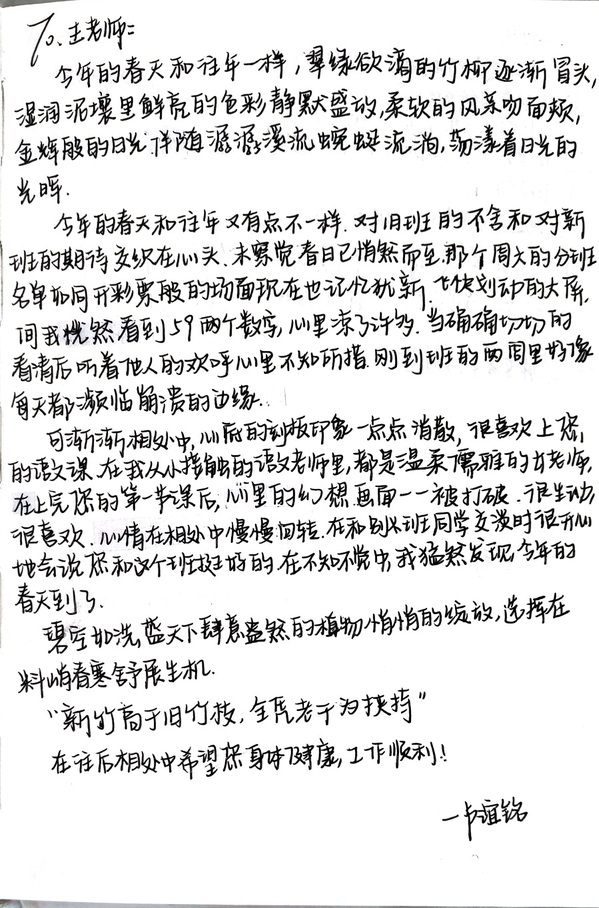 To.王老师:
今年的春天和往年一样，翠绿欲滴的竹柳逐渐冒头，
湿润泥壤里鲜亮的色彩静默盛放，柔软的风亲吻面颊，
金辉般的日光伴随潺潺溪流蜿蜒流淌，荡漾着日光的
光晖.
今年的春天和往年又有点不一样.对旧班的不舍和对新
班的期待交织在心头.未察觉春日已悄然而至.那个周六的分班
名单如同开彩票般的场面现在也记忆犹新.飞快划动的大屏，
间我恍然看到59两个数字，心里凉了许多.当确确切切的
看清后听着他人的欢呼心里不知所措.刚到班的两周里好像
每天都濒临崩溃的边缘.
可渐渐相处中，心底的刻板印象一点点消散，很喜欢上您，
的语文课.在我从小接触的语文老师里，都是温柔儒雅的女老师，
在上完您的第一节课后，心里的幻想画面一一被打破.很生动，
很喜欢.心情在相处中慢慢回转.在和别班同学交谈时很开心
地会说您和这个班挺好的.在不知不觉中，我猛然发现今年的
春天到了.
碧空如洗，蓝天下肆意盎然的植物悄悄的绽放，选择在
料峭春寒舒展生机.
“新竹高于旧竹枝，全凭老干为扶持”
在往后相处中希望您身体健康，工作顺利！
—卢谊铭